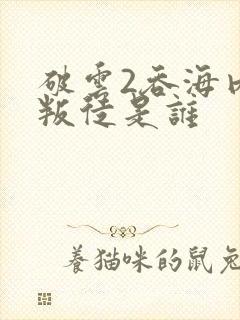 破雲2吞海內
叛徒是誰
養貓咪的鼠兔